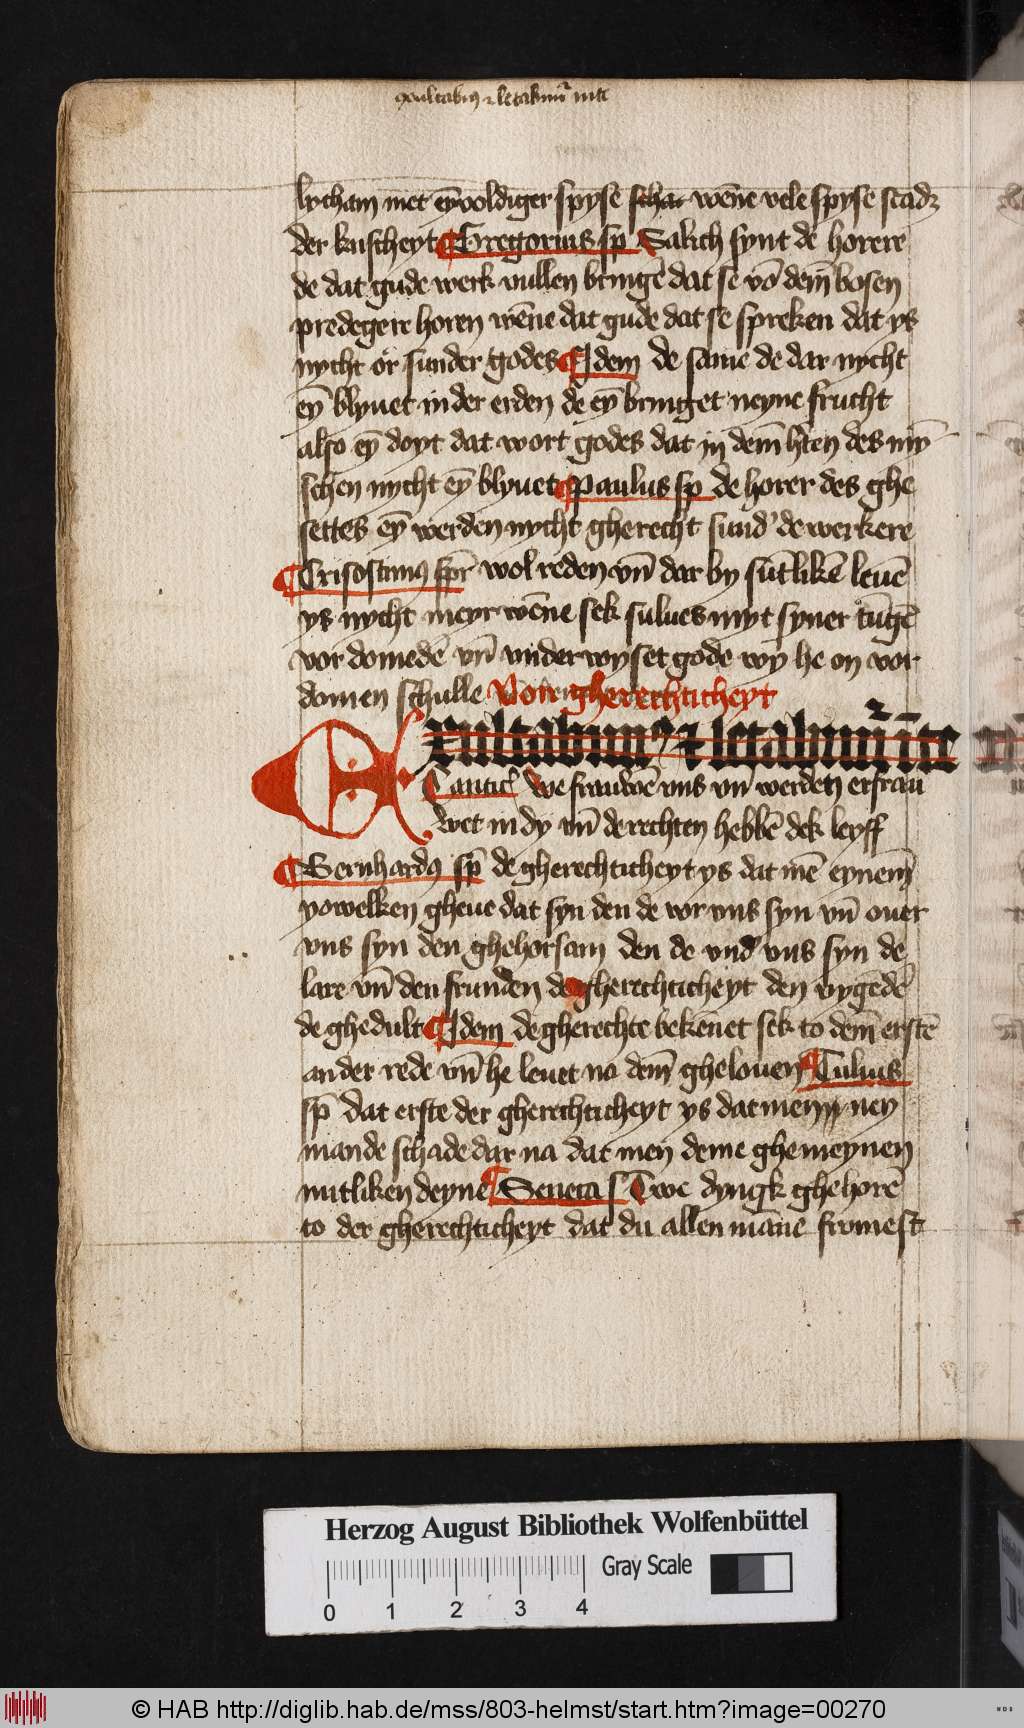 exultabimꝫ ⁊ letabimur in te
lycham met eȳvoldiger spyse schat wēne vele spyse scadꝫ
der kuscheyt Gregorius sp̄ Salich synt de horere
de dat gude werk vullen bringē dat se vō dem̄ bosen
predegere horen wēne dat gude dat se spreken dat ys
nycht ör sunder godes Idem de same de dar nycht
eȳ blyuet in der erden de eȳ bringet neyne frucht
also eȳ doyt dat wort godes dat in dem̄ h̄ten des mȳ
schen nycht eȳ blyuet Paulus sp̄ de horer des ghe
settes eȳ werden nycht gherecht sund' de werkere
Crisostimꝫ spr̄ wol reden vn̄ dar by sūtlikē leuē
ys nycht meyr wēne sek sulues myt syner tūgē
vor domedē vn̄ vnderwyset gode wy he on vor
domen schulle Von gherechticheyt
Exultabimꝫ ⁊ letabimur in te
Cantic̄ We frauwē vns vn̄ werden erfrau
wet in dy vn̄ de rechten hebbē dek leyff
Bernhardꝫ sp̄ de gherechticheyt ys dat mē eynem̄
yowelken gheue dat syn den de vor vns syn vn̄ ouer
vns syn den ghehorsam den de vnd' vns syn de
lare vn̄ den frunden de gherechticheyt den vygēdē
de ghedult Idem de gherechte bekēnet sek to dem̄ erstē
ander rede vn̄ he leuet na dem̄ ghelouen Tulius
sp̄ dat erste der gherechticheyt ys dat men ney
mande schade dar na dat men deme ghemeynen
nutliken deyne Seneca s Twe dyngk ghehorē
to der gherechticheyt dat du allen māne fromest
Herzog August Bibliothek Wolfenbüttel
Gray Scale
0 1 2 3 4
© HAB http://diglib.hab.de/mss/803-helmst/start.htm?image=00270